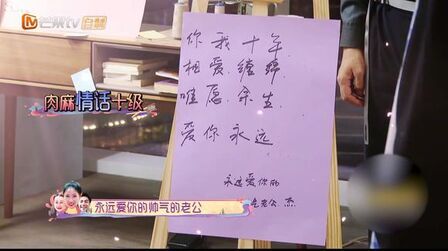 芒果tv 自制
你我十年
相爱缠绵
唯愿余生
爱你永远
永远爱你的
老公 杰
肉麻情话十级
永远爱你的帅气的老公